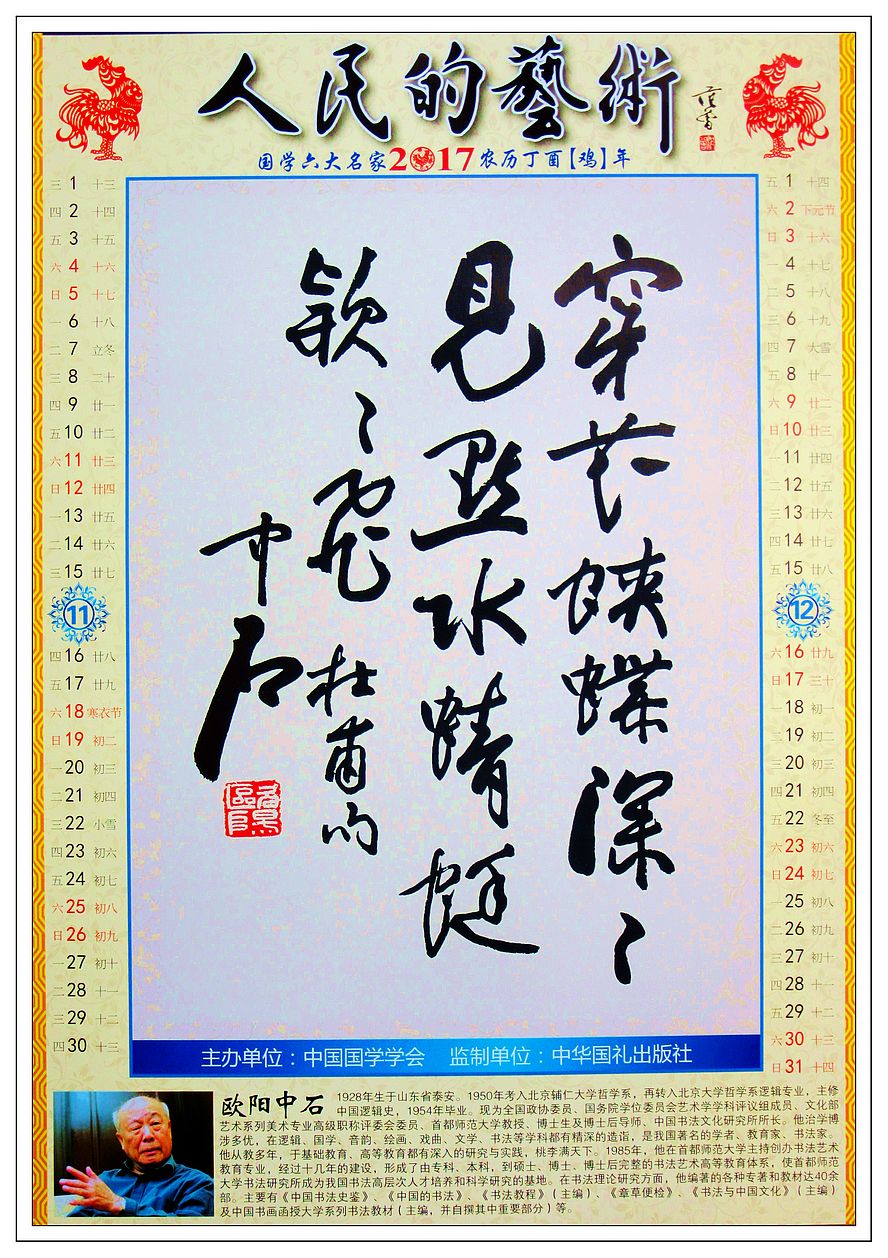 人民的藝術
范曾
国学六大名家2017农历丁酉【鸡】年
三 1 十三
四 2 十四
五 3 十五
六 4 十六
日 5 十七
一 6 十八
二 7 立冬
三 8 二十
四 9 廿一
五 10 廿二
六 11 廿三
日 12 廿四
一 13 廿五
二 14 廿六
三 15 廿七
11
四 16 廿八
五 17 廿九
六 18 寒衣节
日 19 初二
一 20 初三
二 21 初四
三 22 小雪
四 23 初六
五 24 初七
六 25 初八
日 26 初九
一 27 初十
二 28 十一
三 29 十二
四 30 十三
穿花蛺蝶深〻
見點水蜻蜓
款〻飛 杜甫句
中石
五 1 十四
六 2 下元节
日 3 十六
一 4 十七
二 5 十八
三 6 十九
四 7 大雪
五 8 廿一
六 9 廿二
日 10 廿三
一 11 廿四
二 12 廿五
三 13 廿六
四 14 廿七
五 15 廿八
12
六 16 廿九
日 17 三十
一 18 初一
二 19 初二
三 20 初三
四 21 初四
五 22 冬至
六 23 初六
日 24 初七
一 25 初八
二 26 初九
三 27 初十
四 28 十一
五 29 十二
六 30 十三
日 31 十四
主办单位：中国国学学会 监制单位：中华国礼出版社
欧阳中石 1928年生于山东省泰安。1950年考入北京辅仁大学哲学系，再转入北京大学哲学系逻辑专业，主修
中国逻辑史，1954年毕业。现为全国政协委员、国务院学位委员会艺术学学科评议组成员、文化部
艺术系列美术专业高级职称评委会委员、首都师范大学教授、博士生及博士后导师、中国书法文化研究所所长。他治学博
涉多优，在逻辑、国学、音韵、绘画、戏曲、文学、书法等学科都有精深的造诣，是我国著名的学者、教育家、书法家。
他从教多年，于基础教育、高等教育都有深入的研究与实践，桃李满天下。1985年，他在首都师范大学主持创办书法艺术
教育专业，经过十几年的建设，形成了由专科、本科，到硕士、博士、博士后完整的书法艺术高等教育体系，使首都师范
大学书法研究所成为我国书法高层次人才培养和科学研究的基地。在书法理论研究方面，他编著的各种专著和教材达40余
部。主要有《中国书法史鉴》、《中国的书法》、《书法教程》（主编）、《章草便检》、《书法与中国文化》（主编）
及中国书画函授大学系列书法教材（主编，并自撰其中重要部分）等。